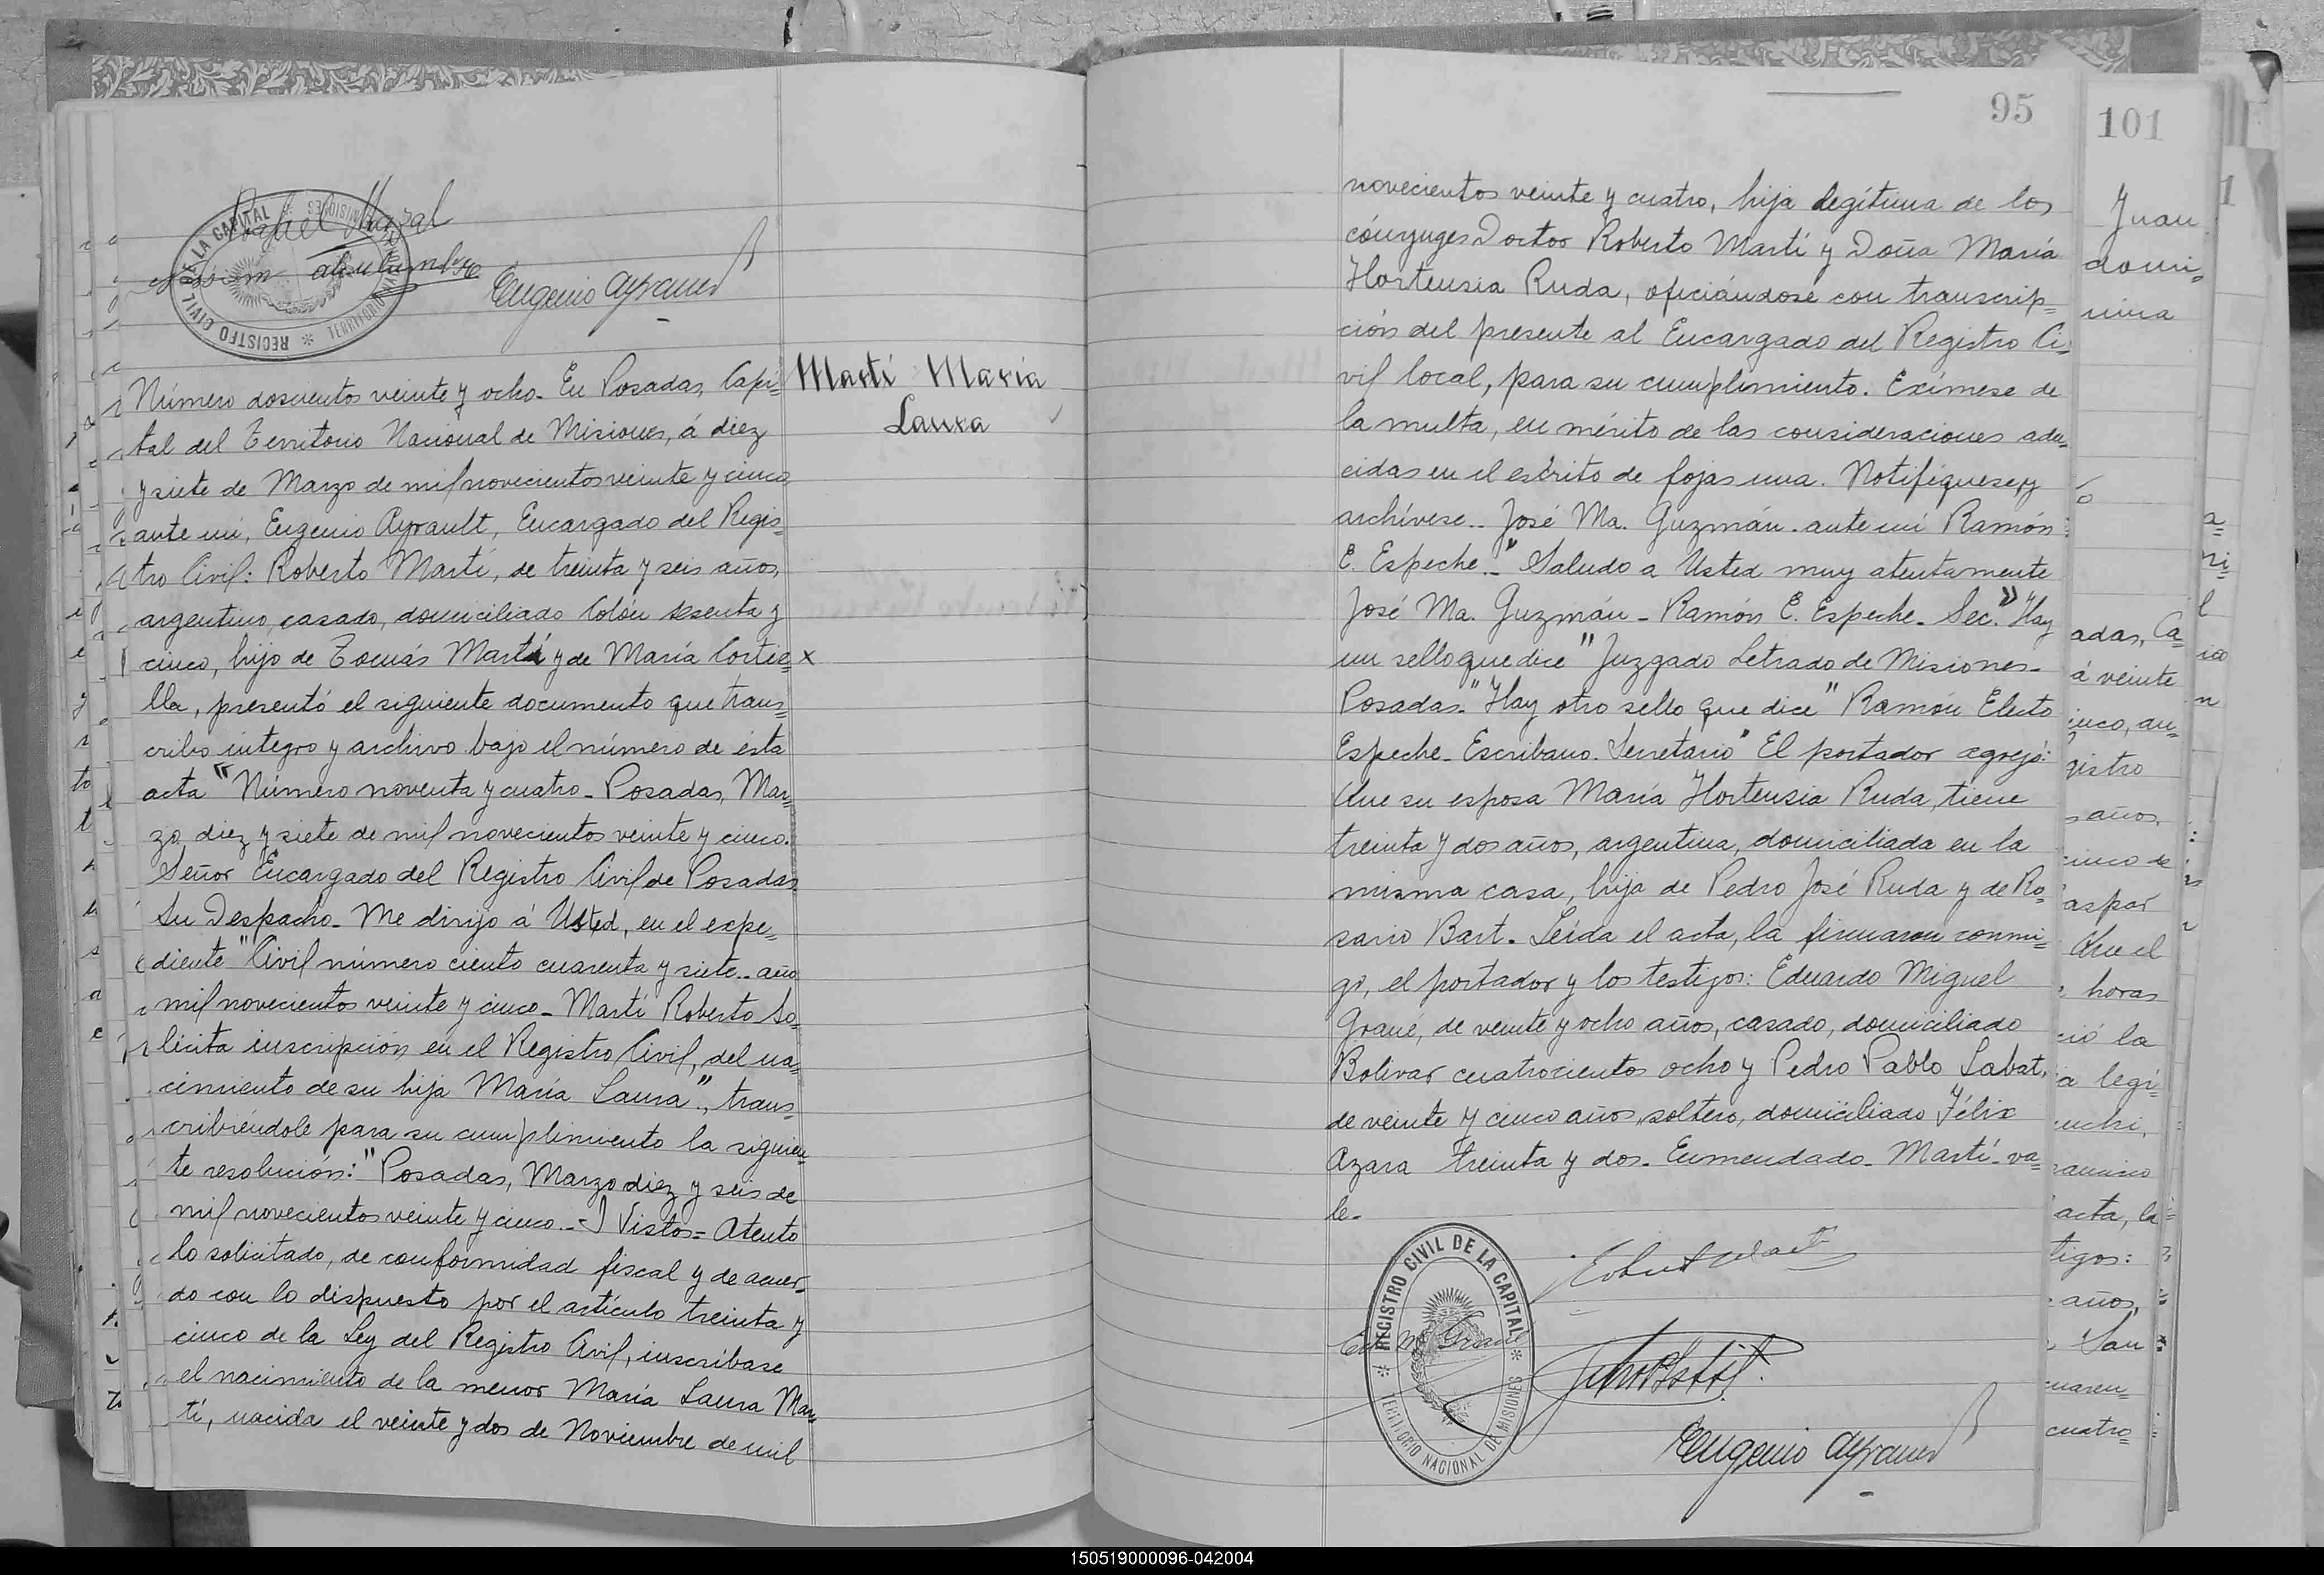 Rafael Marsal
Eugenio Ayrault
REGISTRO CIVIL DE LA CAPITAL * TERRITORIO NACIONAL DE MISIONES *
Martí María
Laura
Número doscientos veinte y ocho. En Posadas, Capi=
tal del Territorio Nacional de Misiones, á diez
y siete de Marzo de mil novecientos veinte y cinco
ante mi, Eugenio Ayrault, Encargado del Regis=
tro Civil: Roberto Martí, de treinta y seis años,
argentino, casado, domiciliado Colón sesenta y
cinco, hijo de Tomás Martí y de María Cortie= x
lla, presentó el siguiente documento que trans=
cribo íntegro y archivo bajo el número de ésta
acta "Número noventa y cuatro - Posadas, Mar=
zo, diez y siete de mil novecientos veinte y cinco.
Señor Encargado del Registro Civil de Posadas
Su Despacho - Me dirijo á Usted, en el expe=
diente "Civil número ciento cuarenta y siete - año
mil novecientos veinte y cinco - Martí Roberto So=
licita inscripción en el Registro Civil, del na=
cimiento de su hija María Laura", trans=
cribiéndole para su cumplimiento la siguien=
te resolución: "Posadas, Marzo diez y seis de
mil novecientos veinte y cinco - Y Vistos = Atento
lo solicitado, de conformidad fiscal y de acuer=
do con lo dispuesto por el artículo treinta y
cinco de la Ley del Registro Civil, inscríbase
el nacimiento de la menor María Laura Mar=
tí, nacida el veinte y dos de Noviembre de mil
95
novecientos veinte y cuatro, hija legítima de los
cónyuges Doctor Roberto Martí y Doña María
Hortensia Ruda, oficiándose con transcrip=
ción del presente al Encargado del Registro Ci=
vil local, para su cumplimiento. Exímese de
la multa, en mérito de las consideraciones adu=
cidas en el escrito de fojas una. Notifíquese, y
archívese.. José Ma. Guzmán. ante mí Ramón
E. Espeche." Saludo a Usted muy atentamente
José Ma. Guzmán - Ramón E. Espeche. Sec." Hay
un sello que dice "Juzgado Letrado de Misiones -
Posadas." Hay otro sello que dice "Ramón Electo
Espeche - Escribano. Secretario" El portador agregó:
Que su esposa María Hortensia Ruda, tiene
treinta y dos años, argentina, domiciliada en la
misma casa, hija de Pedro José Ruda y de Ro=
sario Bart. Leída el acta, la firmaron conmi=
go, el portador y los testigos: Eduardo Miguel
Grané, de veinte y ocho años, casado, domiciliado
Bolivar cuatrocientos ocho y Pedro Pablo Labat,
de veinte y cinco años, soltero, domiciliado Félix
Azara treinta y dos. Enmendado - Martí - va=
le.
Ed. M. Grané
Eugenio Ayrault
REGISTRO CIVIL DE LA CAPITAL * TERRITORIO NACIONAL DE MISIONES *
101
Juan
adas, Ca=
á veinte
gistro
años,
aspar
Que el
horas
ció la
a legí=
acta, la
tigos:
años,
San
cuatro=
150519000096-042004